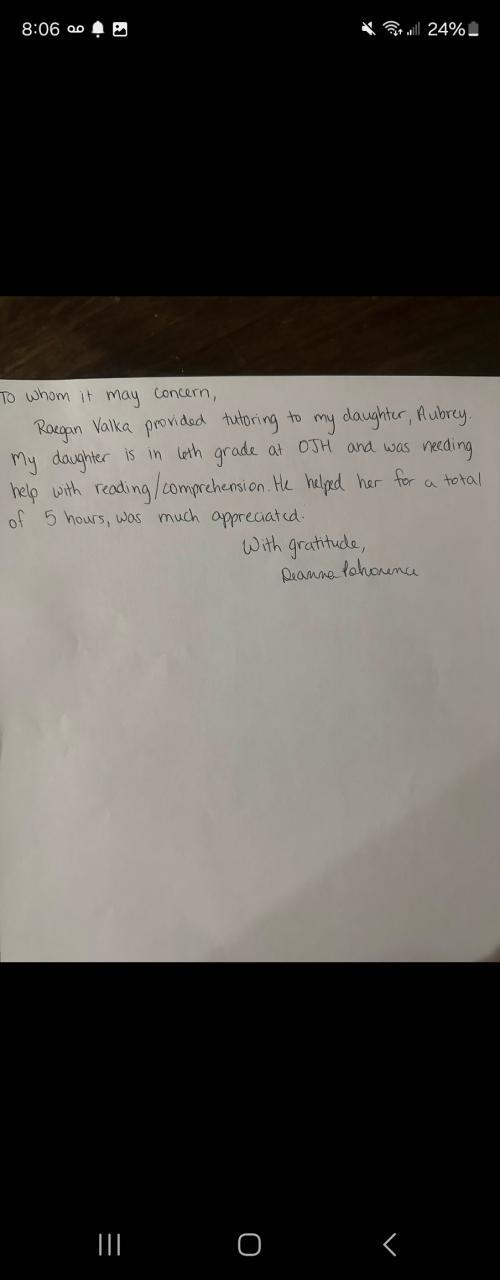 8:06 24%
To whom it may concern,
Raegan Valka provided tutoring to my daughter, Aubrey.
My daughter is in 6th grade at OJH and was needing
help with reading/comprehension. He helped her for a total
of 5 hours, was much appreciated.
With gratitude,
Deanna